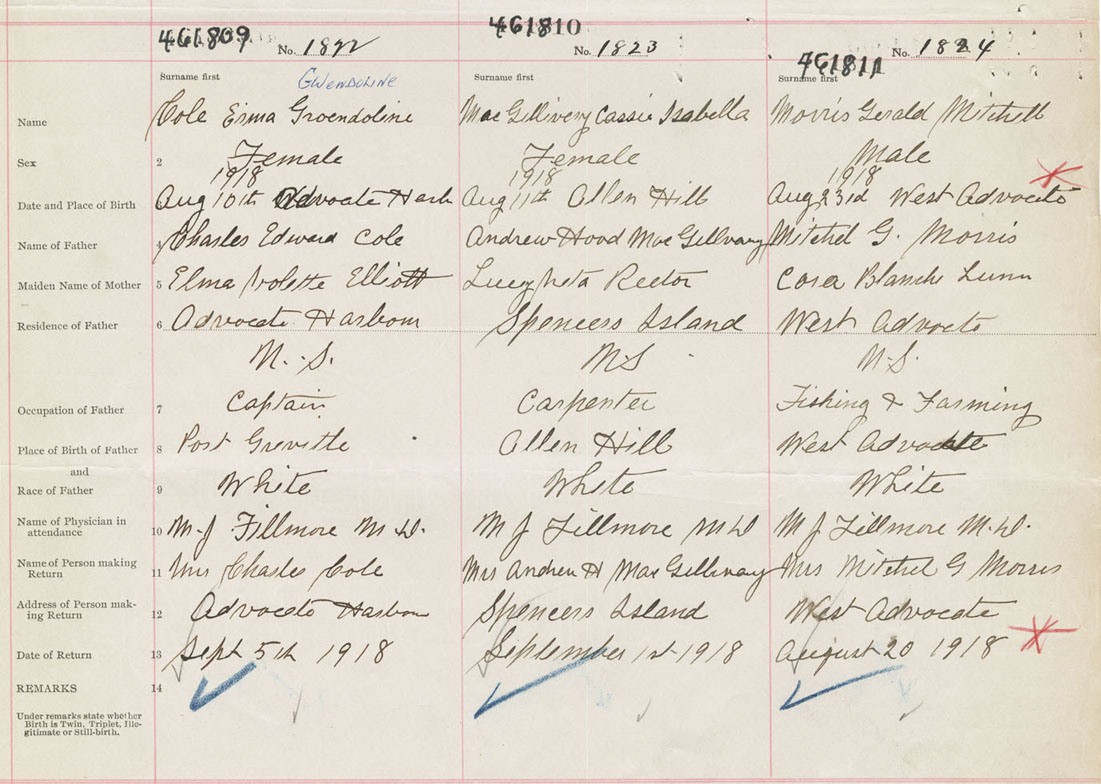 461809 No. 1822 461810 No. 1823 461811 No. 1824
Surname first GWENDOLINE Surname first Surname first
Name Cole Erma Groendoline MacGillivery Cassie Isabella Morris Gerald Mitchell
Sex 2 Female Female Male
1918 1918 1918
Date and Place of Birth Aug 10th Advocate Harb Aug 11th Allen Hill Aug 23rd West Advocate
Name of Father 4 Charles Edward Cole Andrew Hood MacGillvary Mitchel G. Morris
Maiden Name of Mother 5 Elma Violette Elliott Lucy Neta Rector Cora Blanche Lunn
Residence of Father 6 Advocate Harbour Spencers Island West Advocate
N.S. NS N.S.
Occupation of Father 7 Captain Carpenter Fishing & Farming
Place of Birth of Father 8 Port Greville Allen Hill West Advocate
and
Race of Father 9 White White White
Name of Physician in
attendance 10 M.J Fillmore M.D. M J Fillmore M D M J Fillmore M.D.
Name of Person making
Return 11 Mrs Charles Cole Mrs Andrew H MacGillivary Mrs Mitchel G Morris
Address of Person mak-
ing Return 12 Advocate Harbour Spencers Island West Advocate
Date of Return 13 Sept 5th 1918 September 1st 1918 August 20 1918
REMARKS 14
Under remarks state whether
Birth is Twin, Triplet, Ille-
gitimate or Still-birth.